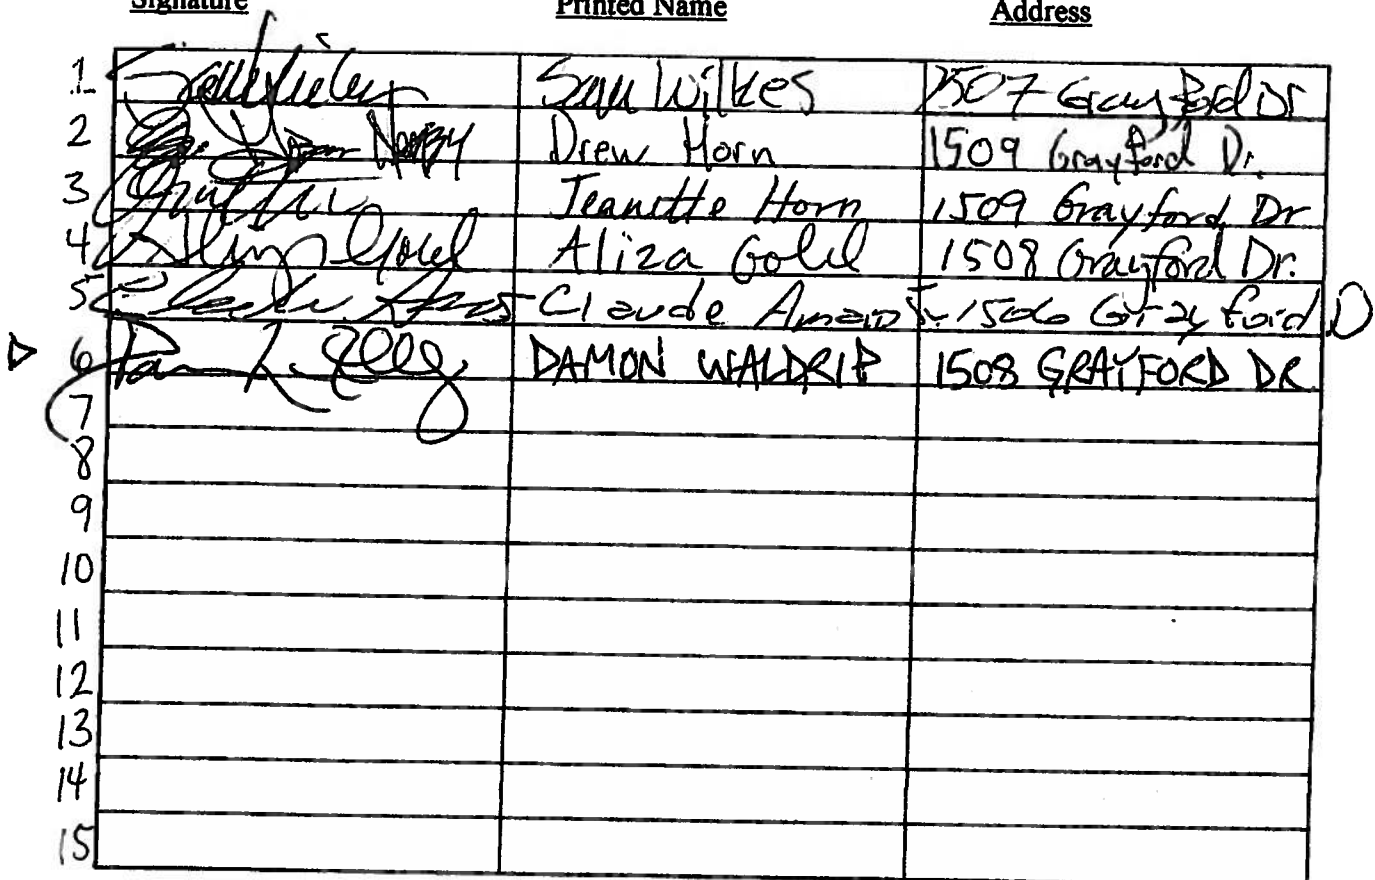 Signature Printed Name Address
1 Sam Wilkes 1507 Grayford Dr
2 Drew Horn 1509 Grayford Dr.
3 Jeanette Horn 1509 Grayford Dr
4 Aliza Gold Aliza Gold 1508 Grayford Dr.
5 Claude 1506 Grayford D
6 DAMON WALDRIP 1508 GRAYFORD DR
7
8
9
10
11
12
13
14
15